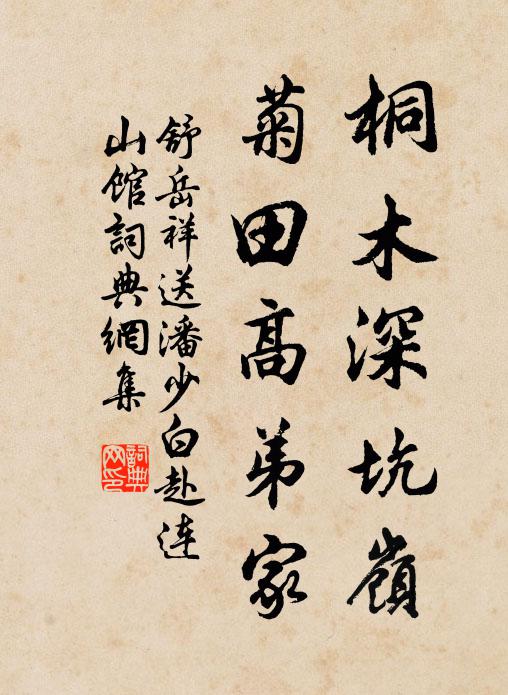 桐木深坑嶺
菊田高弟家
舒岳祥送潘少白赴連
山館詞典網集
詞典网印